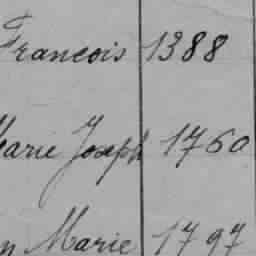 Francois 1388
Marie Joseph 1760
n Marie 1797